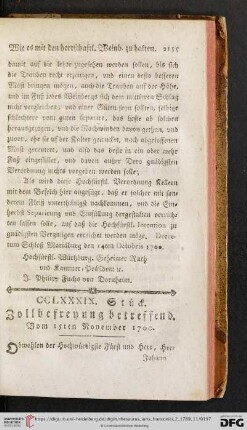 Wie es mit den herrschaftl. Weinb. zu halten. 2155
damit auf die letzte zugesehen werden sollen, bis sich
die Trauben recht erzeitigen, und einen desto besseren
Most bringen mögen, auch die Trauben auf der Höhe,
und im Fuß jenes Weinbergs sich dem mittleren Schlag
nicht vergleichen, und einer Güten seyn sollten, selbige
schlechtere vom guten separirt, das beste ab solchen
herausgezogen, und die Nachwürden davon gethan, und
zwar, ehe sie auf die Kälter gebracht, auch abgelassenen
Most gewonnen, und alles das beste in ein oder mehr
Faß eingefüllet, und davon ausser Dero gnädigsten
Verordnung nichts vergeben werden solle;
Als wird diese Hochfürstl. Verordnung Kellern
mit dem Befelch hier angefügt, daß er solcher mit son-
derem Fleiß unterthänigst nachkommen, und die Ein-
herbst Separirung und Einfüllung dergestalten verrichte
den lassen solle, auf daß sie Hochfürstl. Intention zu
gnädigsten Vergnügen erreichet werden möge, Decre-
tum Schloß Marienburg den 14ten Octobris 1700.
Hochfürstl. Würzburg. Geheimer Rath
und Kammer-Präsident ic.
J. Philipp Fuchs von Dornheim.
CCLXXXIX. Stück.
Zollbefreyung betreffend.
Vom 15ten November 1700.
Obwohlen der Hochwürdigste Fürst und Herr, Herr
Johann